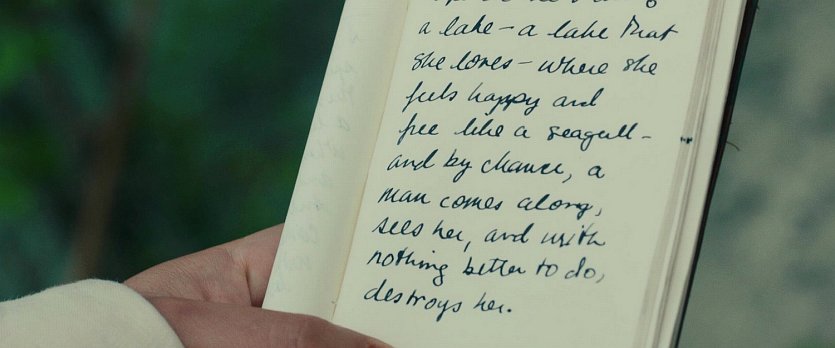 a lake – a lake that
she loves – where she
feels happy and
free like a seagull –
and by chance, a
man comes along,
sees her, and with
nothing better to do,
destroys her.